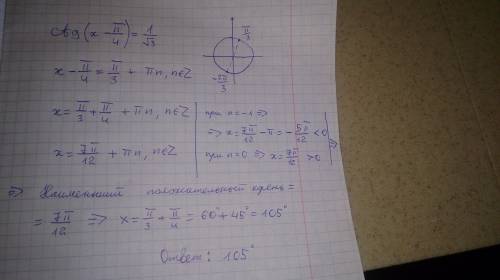 ctg(x - π/4) = 1/√3
π/3
x - π/4 = π/3 + πn, n∈Z
-2π/3
x = π/3 + π/4 + πn, n∈Z
при n = -1 ⇒
⇒ x = 7π/12 - π = -5π/12 < 0
x = 7π/12 + πn, n∈Z
при n = 0 ⇒ x = 7π/12 > 0 ⇒
⇒ Наименьший положительный корень =
= 7π/12 ⇒ x = π/3 + π/4 = 60° + 45° = 105°
Ответ: 105°